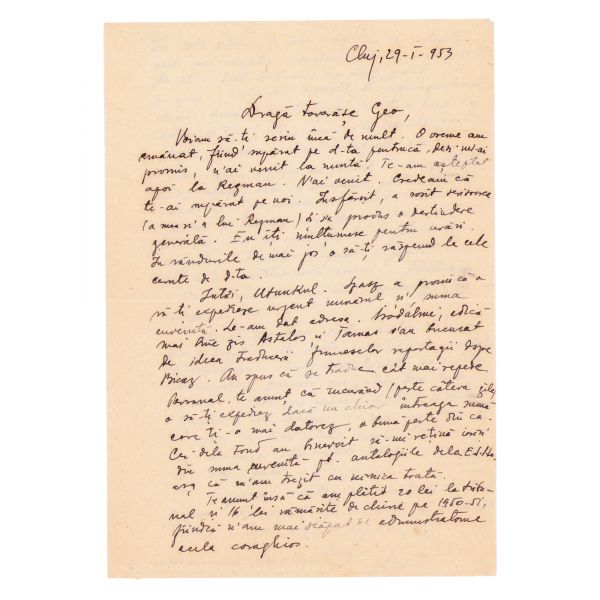 Cluj, 29-I-953
Dragă tovarășe Geo,
Voiam să-ți scriu încă de mult. O vreme am
amânat, fiind supărat pe d-ta pentrucă, deși mi-ai
promis, n'ai venit la nuntă. Te-am așteptat
apoi la Regman. N'ai venit. Credeam că
te-ai supărat pe noi. Însfârșit, a sosit scrisoarea
(a mea și a lui Regman) și s'a produs o destindere
generală. Eu îți mulțumesc pentru urări.
În rândurile de mai jos o să-ți răspund la cele
cerute de d-ta.
Întâi, Utunkul. a promis că o
să-ți expedieze urgent numărul și suma
cuvenită. Le-am dat adresa. Irodalmi, adică
mai bine zis Astalos și Tamas s'au bucurat
de ideea traducerii frumoaselor reportagii despre
Bicaz. Au spus că se traduc cât mai repede
Personal, te anunț că în curând (peste câteva zile)
o să-ți expediez dacă nu chiar întreaga sumă
care ți-o mai datorez, o bună parte din ea.
Cei dela Fond au binevoit să-mi rețină
din suma cuvenită pt. antologiile dela E.S.
așa că m'am trezit cu nimica toată.
Te anunț însă că am plătit 20 lei la
și 16 lei rămășite de chirie pe 1950-51,
fiindcă n'am mai scăpat de administratorul
acela caraghios.